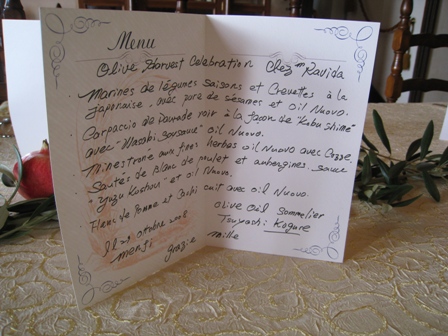 Menu
Olive Harvest Celebration Chez "Ravida
Marines de légumes saisons et Crevettes à la
japonaise, avec pure de sesames et oil Nuovo.
Carpaccio de daurade roir à la façon de "Kobu shime"
avec "Wasabi sousaue" oil Nuovo.
Minestrone aux fines herbes oil Nuovo avec Cosse.
Sautés de Blanc de poulet et aubergines, sauce
"yuzu Koshou" et oil Nuovo.
Flanc de Pomme et Cachi cuit avec oil Nuovo.
Il 29, ottobre, 2008
Olive Oil Sommelier
Tsuyoshi Kogure
mersi grazie mille